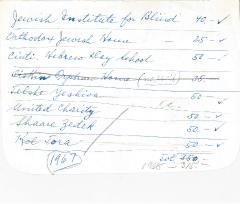 Jewish Institute for Blind 40 - ✓
Orthodox Jewish Home 25 - ✓
Cinti. Hebrew Day School 50 - ✓
Orphan Home 25 -
Telshe Yeshiva 50 - ✓
United Charity
Shaare Zedek 50 - ✓
Kol Tora 50 - ✓
1967